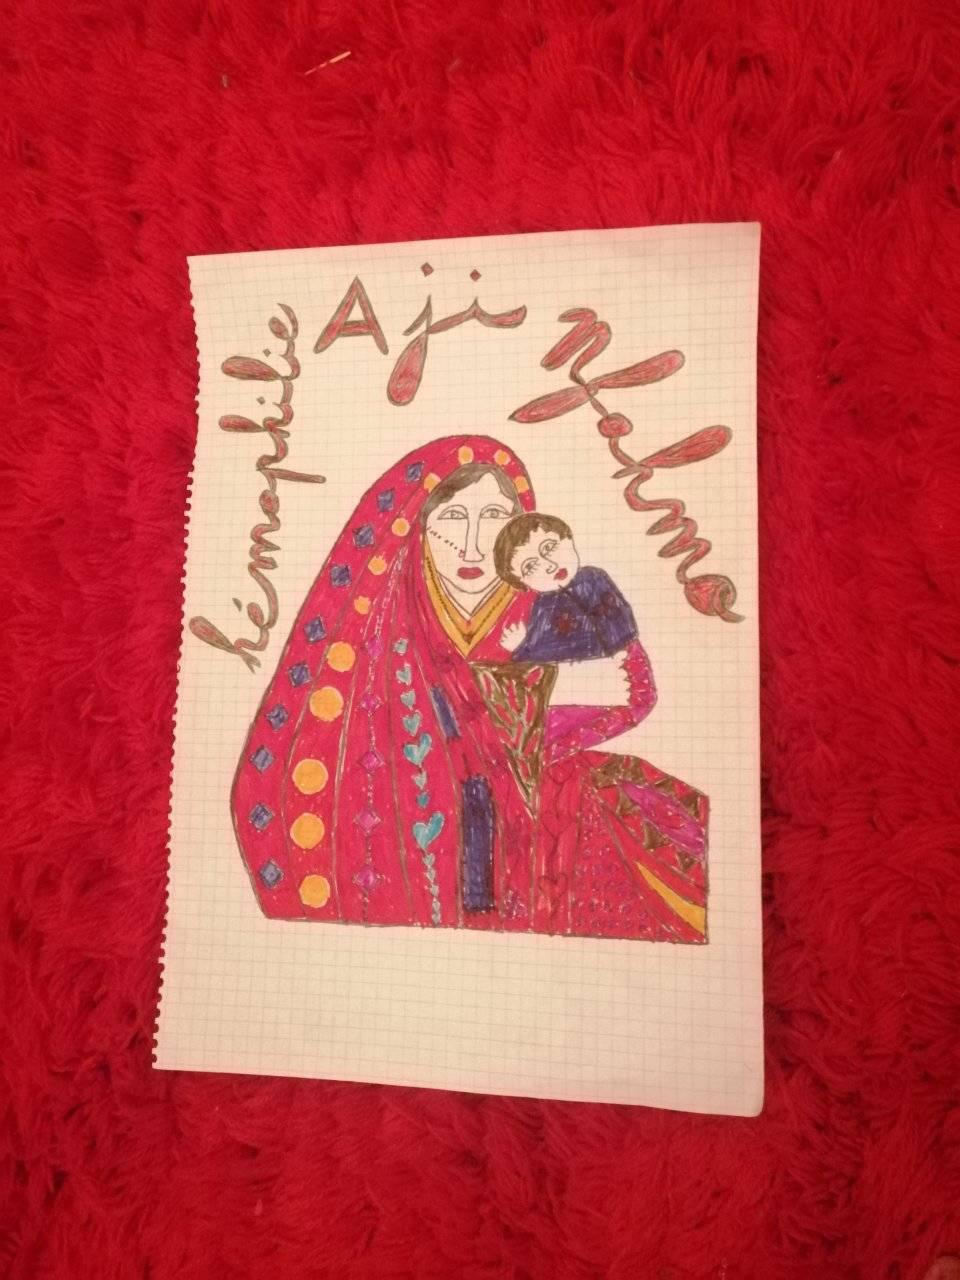 hémophilie
Aji
nfahmo